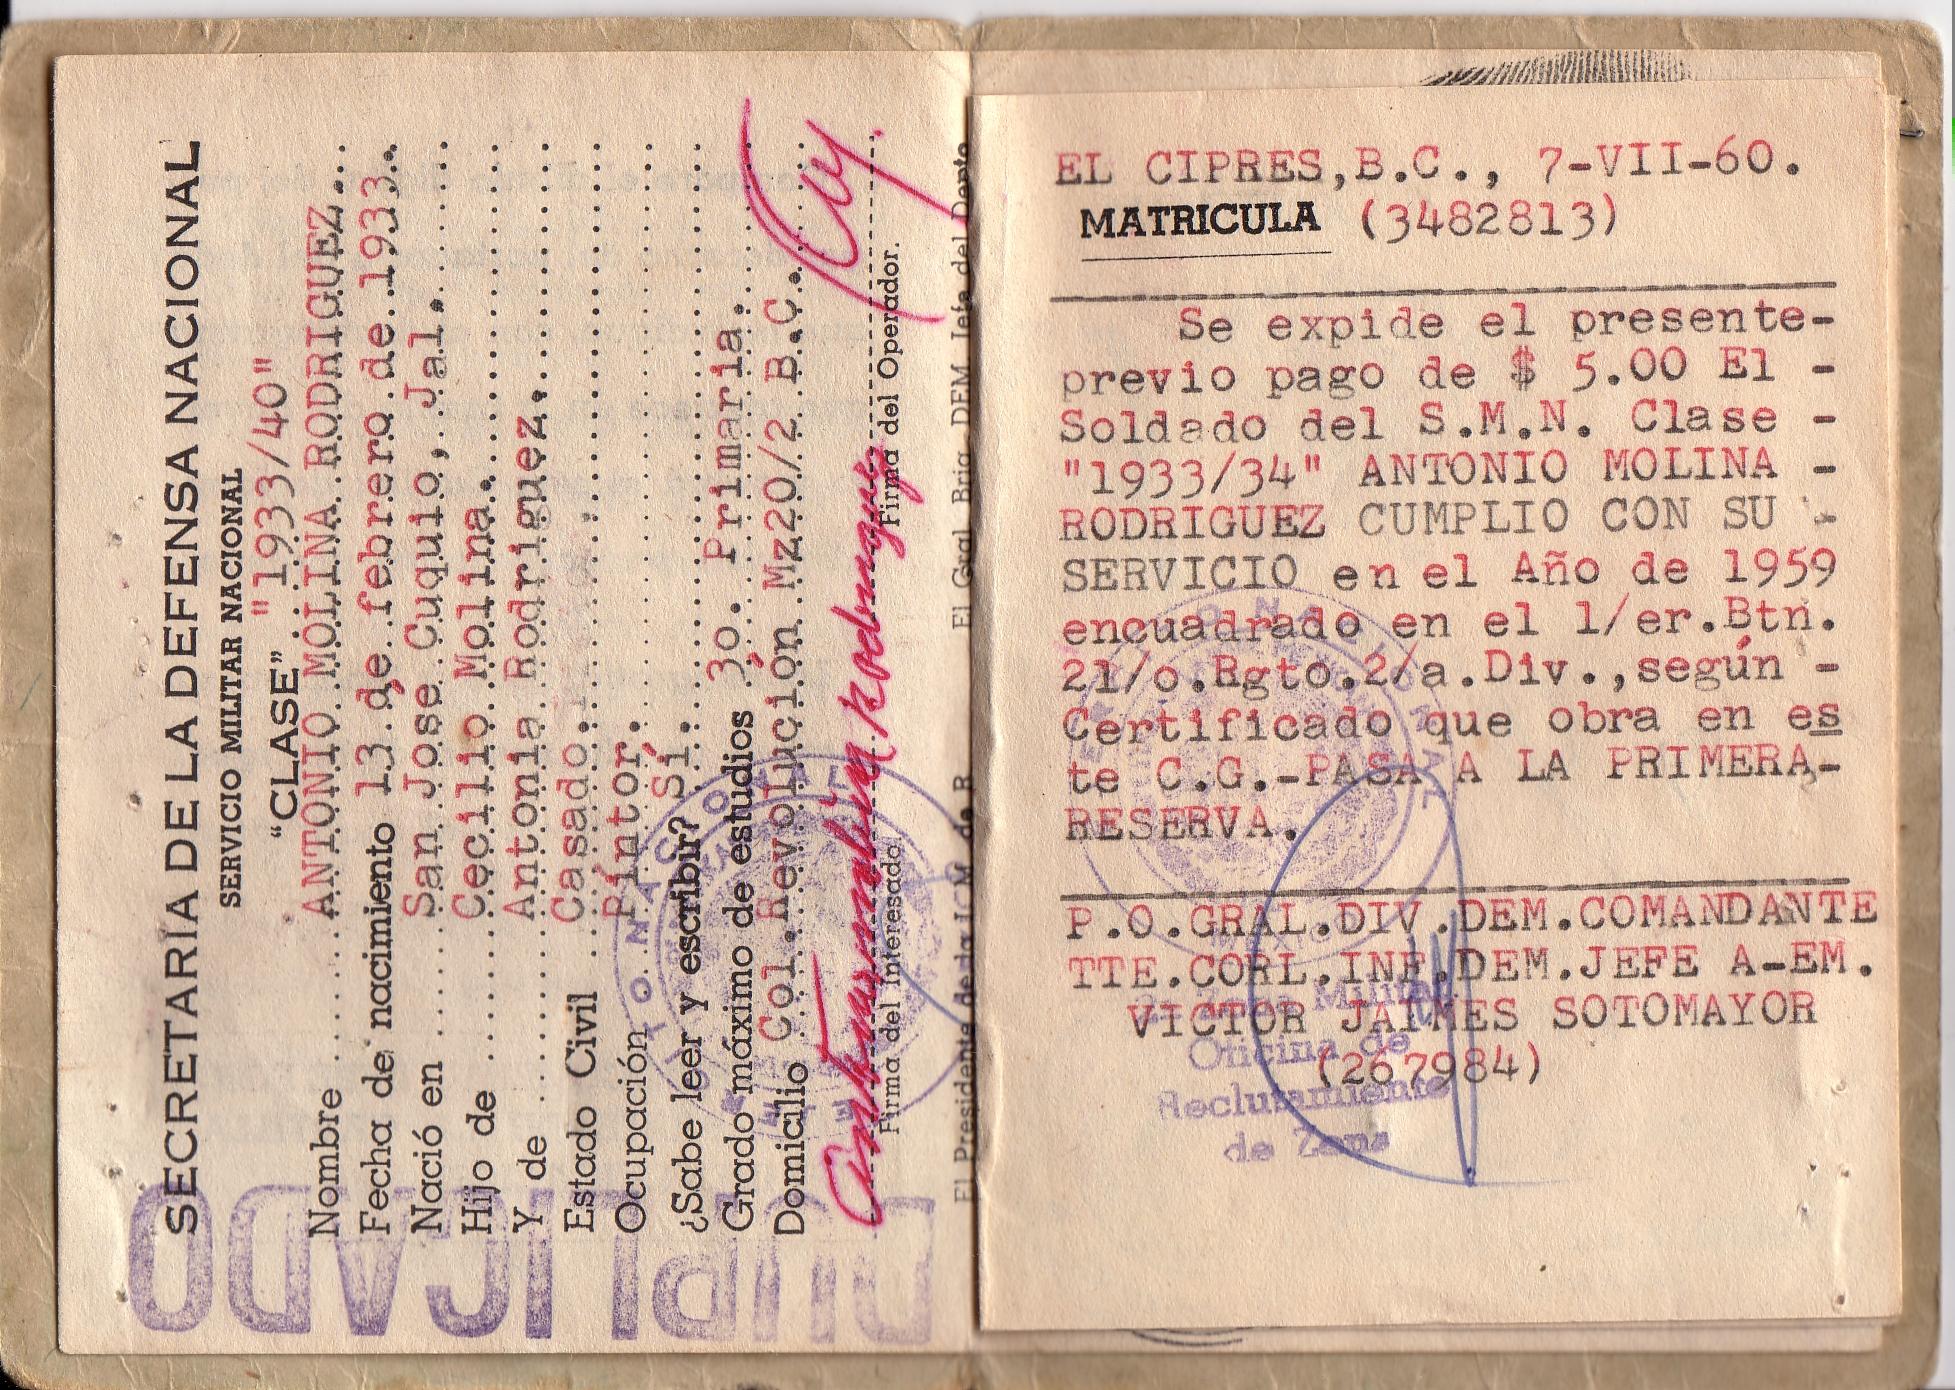 SECRETARIA DE LA DEFENSA NACIONAL
SERVICIO MILITAR NACIONAL
"CLASE". "1933/40"
Nombre ANTONIO MOLINA RODRIGUEZ.
Fecha de nacimiento 13 de febrero de 1933.
Nació en San Jose Cuquio, Jal.
Hijo de Cecilio Molina.
Y de Antonia Rodriguez.
Estado Civil Casado.
Ocupación Pintor.
¿Sabe leer y escribir? Sí.
Grado máximo de estudios 3o. Primaria.
Domicilio Col. Revolución Mz20/2 B.C.
Antonio Molina Rodriguez
Firma del Interesado. Firma del Operador.
El Presidente de la J.C.M. de R El Gral. Brig. DEM. Jefe del Depto.
DUPLICADO
EL CIPRES,B.C., 7-VII-60.
MATRICULA (3482813)
Se expide el presente-
previo pago de $ 5.00 El -
Soldado del S.M.N. Clase -
"1933/34" ANTONIO MOLINA -
RODRIGUEZ CUMPLIO CON SU -
SERVICIO en el Año de 1959
encuadrado en el 1/er.Btn.
21/o.Rgto.2/a.Div.,según -
Certificado que obra en es
te C.G.-PASA A LA PRIMERA,-
RESERVA.
P.O.GRAL.DIV.DEM.COMANDANTE
TTE.CORL.INF.DEM.JEFE A-EM.
VICTOR JAIMES SOTOMAYOR
(267984)
Zona Militar
Oficina de
Reclutamiento
de Zona